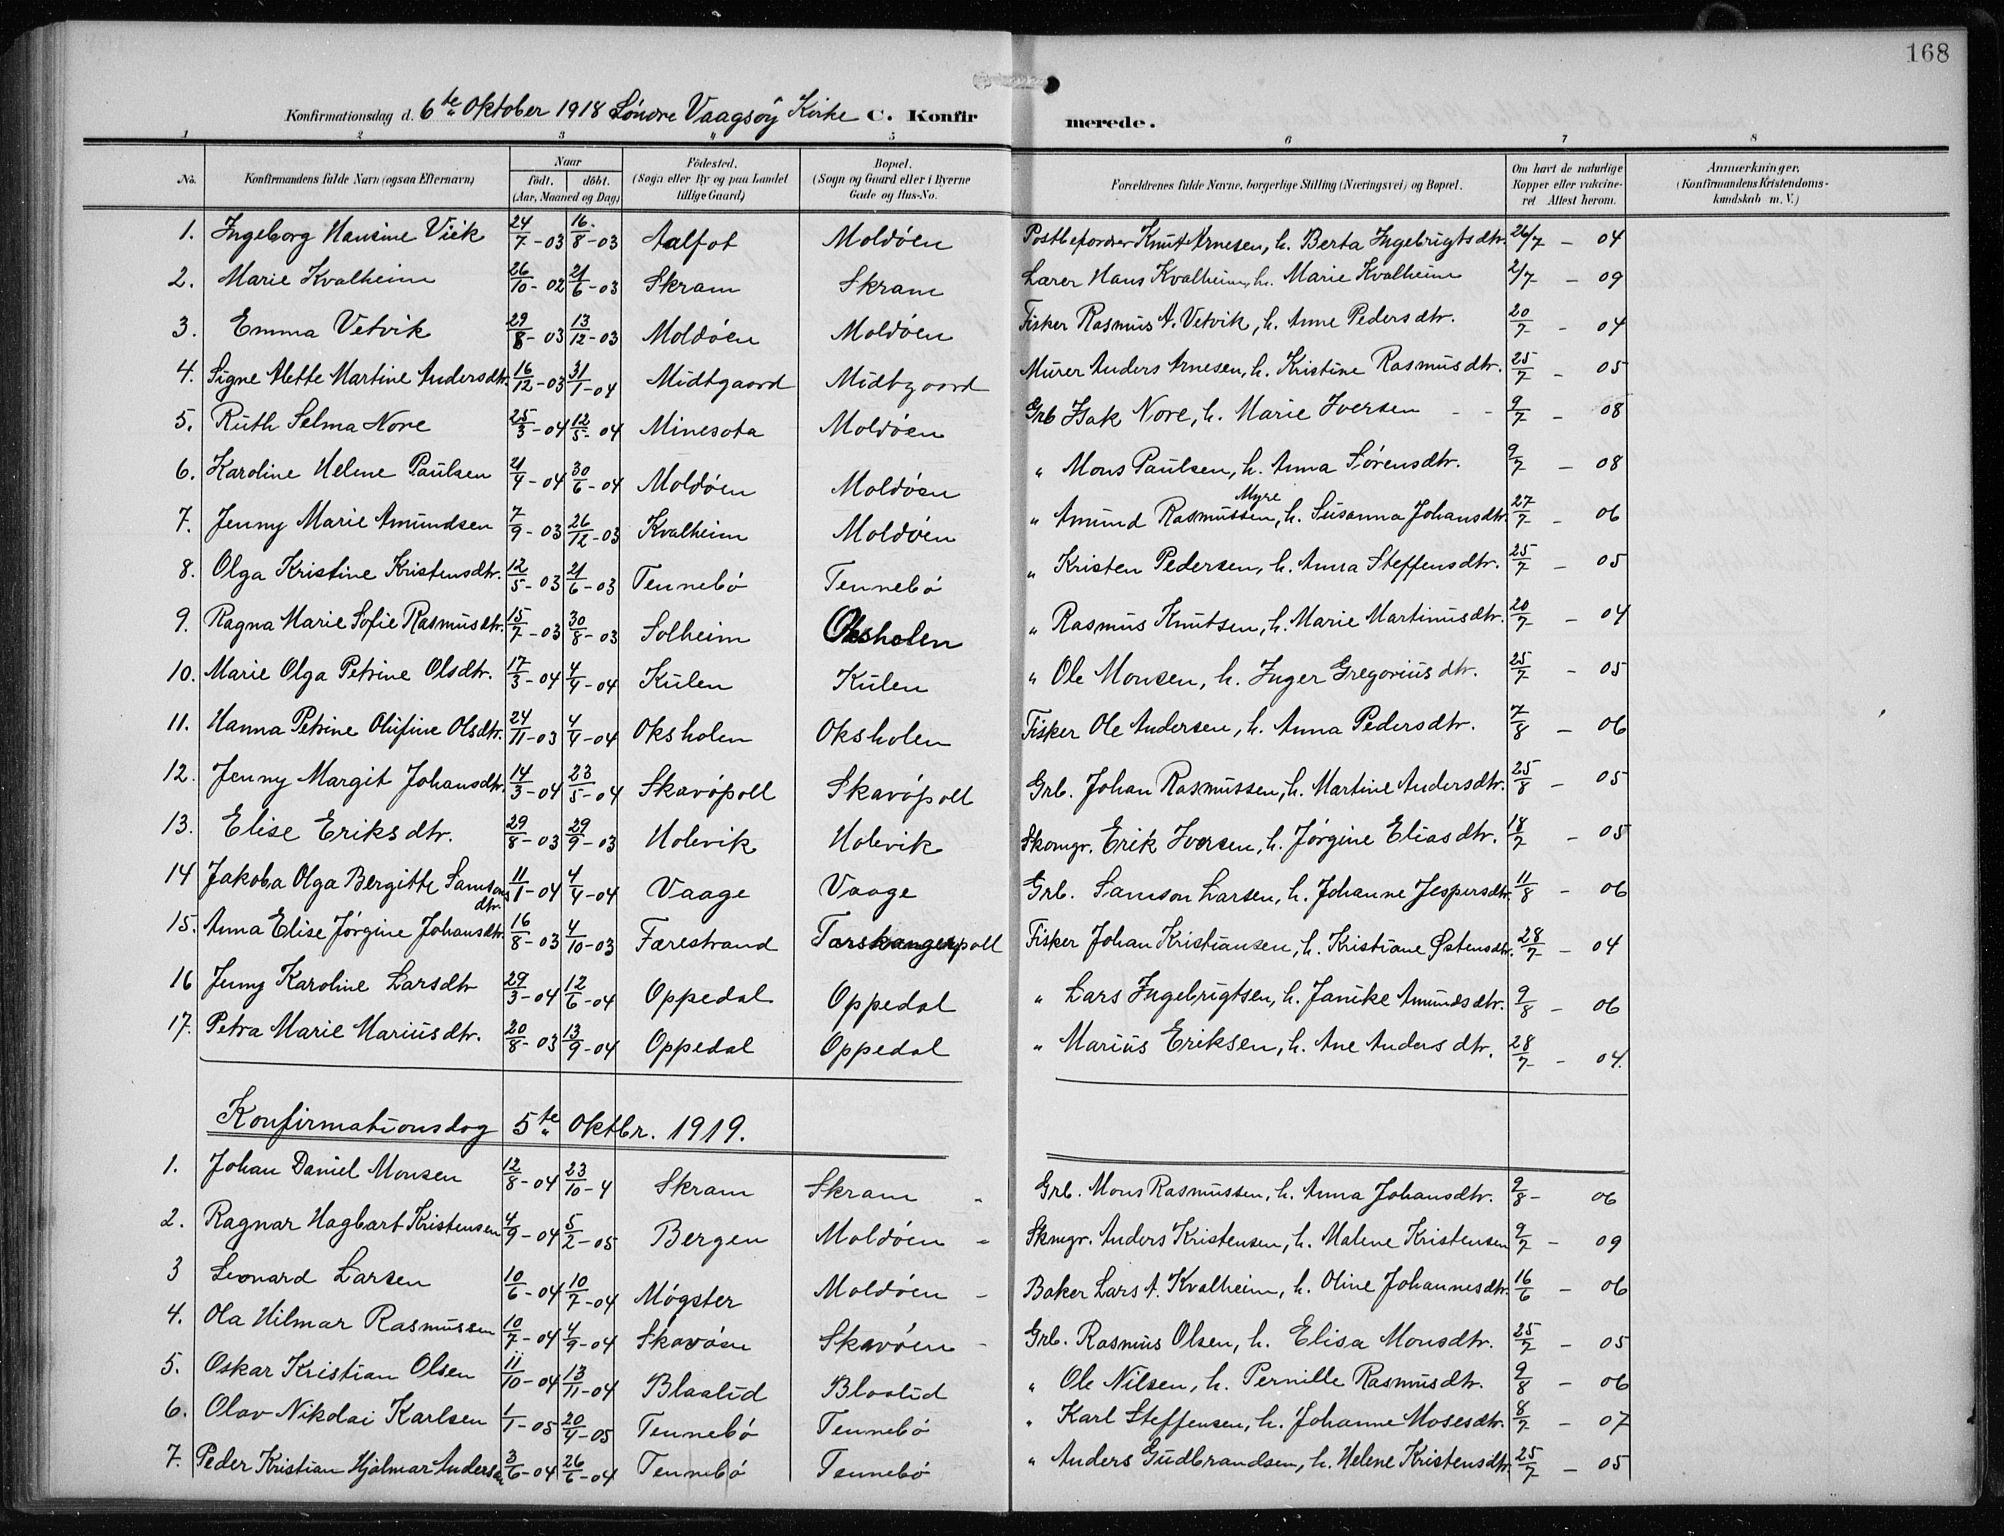 168
Konfirmationsdag d. 6te Oktober 1918 Søndre Vaagsöy Kirke C. Konfirmerede.
1 2 3 4 5 6 7 8
No. Konfirmandens fulde Navn (ogsaa Efternavn) Naar födt. döbt. (Aar, Maaned og Dag) Födested. (Sogn eller By og paa Landet tillige Gaard) Bopæl. (Sogn og Gaard eller i Byerne Gade og Hus-No. Forældrenes fulde Navne, borgerlige Stilling (Næringsvei) og Bopæl. Om havt de naturlige Kopper eller vakcineret Attest herom. Anmærkninger. (Konfirmandens Kristendomskundskab m. V.)
1. Ingeborg Hansine Viik 24/7-03 16/8-03 Aalfot Moldöen Postbefordrer Knut Arnesen, h. Berta Ingebrigtsdtr. 26/7 - 04
2. Marie Kvalheim 26/10-02 21/6-03 Skram Skram Lærer Hans Kvalheim, h. Marie Kvalheim 2/7 - 09
3. Emma Vetvik 29/8-03 13/12-03 Moldöen Moldöen Fisker Rasmus A. Vetvik, h. Anne Pedersdtr. 20/7 - 04
4. Signe Alette Martine Andersdtr. 16/12-03 31/1-04 Midtgaard Midtgaard Murer Anders Arnesen, h. Kristine Rasmusdtr. 25/7 - 05
5. Ruth Selma Nore 25/3-04 12/5-04 Minesota Moldöen Grb Isak Nore, h. Marie Iversen - - 9/7 - 08
6. Karoline Helene Paulsen 21/4-04 30/6-04 Moldöen Moldöen " Mons Paulsen, h. Anna Sörensdtr. 9/7 - 08
7. Jenny Marie Amundsen 7/9-03 26/12-03 Kvalheim Moldöen " Amund Rasmussen Myre, h. Susanna Johansdtr. 27/7 - 06
8. Olga Kristine Kristensdtr. 12/5-03 21/6-03 Tennebö Tennebö " Kristen Pedersen, h. Anna Steffensdtr. 25/7 - 05
9. Ragna Marie Sofie Rasmusdtr. 15/7-03 30/8-03 Solheim Oksholen " Rasmus Knutsen, h. Marie Martinusdtr. 20/7 - 04
10. Marie Olga Petrine Olsdtr. 17/3-04 4/4-04 Kulen Kulen " Ole Monsen, h. Inger Gregoriusdtr. 25/7 - 05
11. Hanna Petrine Olufine Olsdtr. 24/11-03 4/4-04 Oksholen Oksholen Fisker Ole Andersen, h. Anna Pedersdtr. 7/8 - 06
12. Jenny Margit Johansdtr. 14/3-04 23/5-04 Skavöpoll Skavöpoll Grb. Johan Rasmussen, h. Martine Andersdtr. 25/8 - 05
13. Elise Eriksdtr. 29/8-03 29/9-03 Holevik Holevik Skomgr. Erik Iversen, h. Jörgine Eliasdtr. 18/7 - 05
14 Jakoba Olga Bergitte Samsonsdtr. 11/1-04 4/4-04 Vaage Vaage Grb. Samson Larsen, h. Johanne Jespersdtr. 11/8 - 06
15. Anna Elise Jörgine Johansdtr. 16/8-03 4/10-03 Færestrand Torskangerpoll Fisker Johan Kristiansen, h. Kristiane Østensdtr. 28/7 - 04
16 Jenny Karoline Larsdtr 29/3-04 12/6-04 Oppedal Oppedal " Lars Ingebrigtsen, h. Janike Amundsdtr. 9/8 - 06
17. Petra Marie Mariusdtr. 20/8-03 13/9-04 Oppedal Oppedal " Marius Eriksen, h. Ane Andersdtr. 28/7 - 04.
Konfirmationsdag 5te Oktbr. 1919.
1. Johan Daniel Monsen 12/8-04 23/10-4 Skram Skram - Grb. Mons Rasmussen, h. Anna Johansdtr. 9/8 - 06
2. Ragnar Hagbart Kristensen 4/9-04 5/2-05 Bergen Moldöen - Skmgr. Anders Kristensen, h. Malene Kristensen 9/7 - 09
3 Leonard Larsen 10/6-04 10/7-04 Mögster Moldöen - Baker Lars A. Kvalheim, h. Oline Johannesdtr. 16/6 - 06
4. Ola Hilmar Rasmussen 10/7-04 4/9-04 Skavöen Skavöen - Grb. Rasmus Olsen, h. Elisa Monsdtr. 25/7 - 05
5. Oskar Kristian Olsen 11/10-04 13/11-04 Blaalid Blaalid " Ole Nilsen, h. Pernille Rasmusdtr. 9/8 - 06
6. Olav Nikolai Karlsen 1/1-05 20/4-05 Tennebö Tennebö " Karl Steffensen, h. Johanne Mosesdtr. 8/7 - 07
7. Peder Kristian Hjalmar Andersen 3/6-04 26/6-04 Tennebö Tennebö " Anders Gudbrandsen, h. Helene Kristensdtr. 25/7 - 05